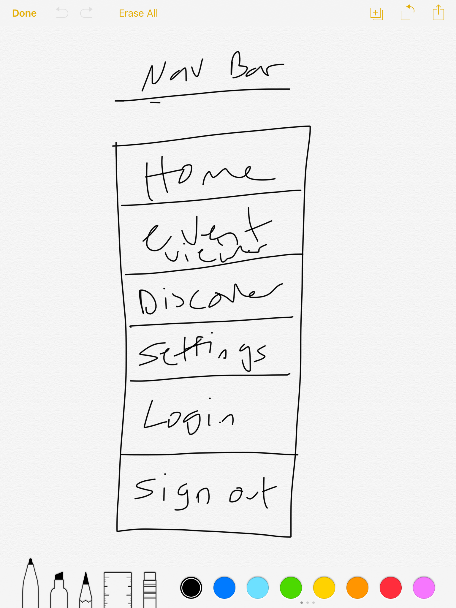 Done
Erase All
Nav Bar
Home
event
viewer
Discover
Settings
Login
Sign out